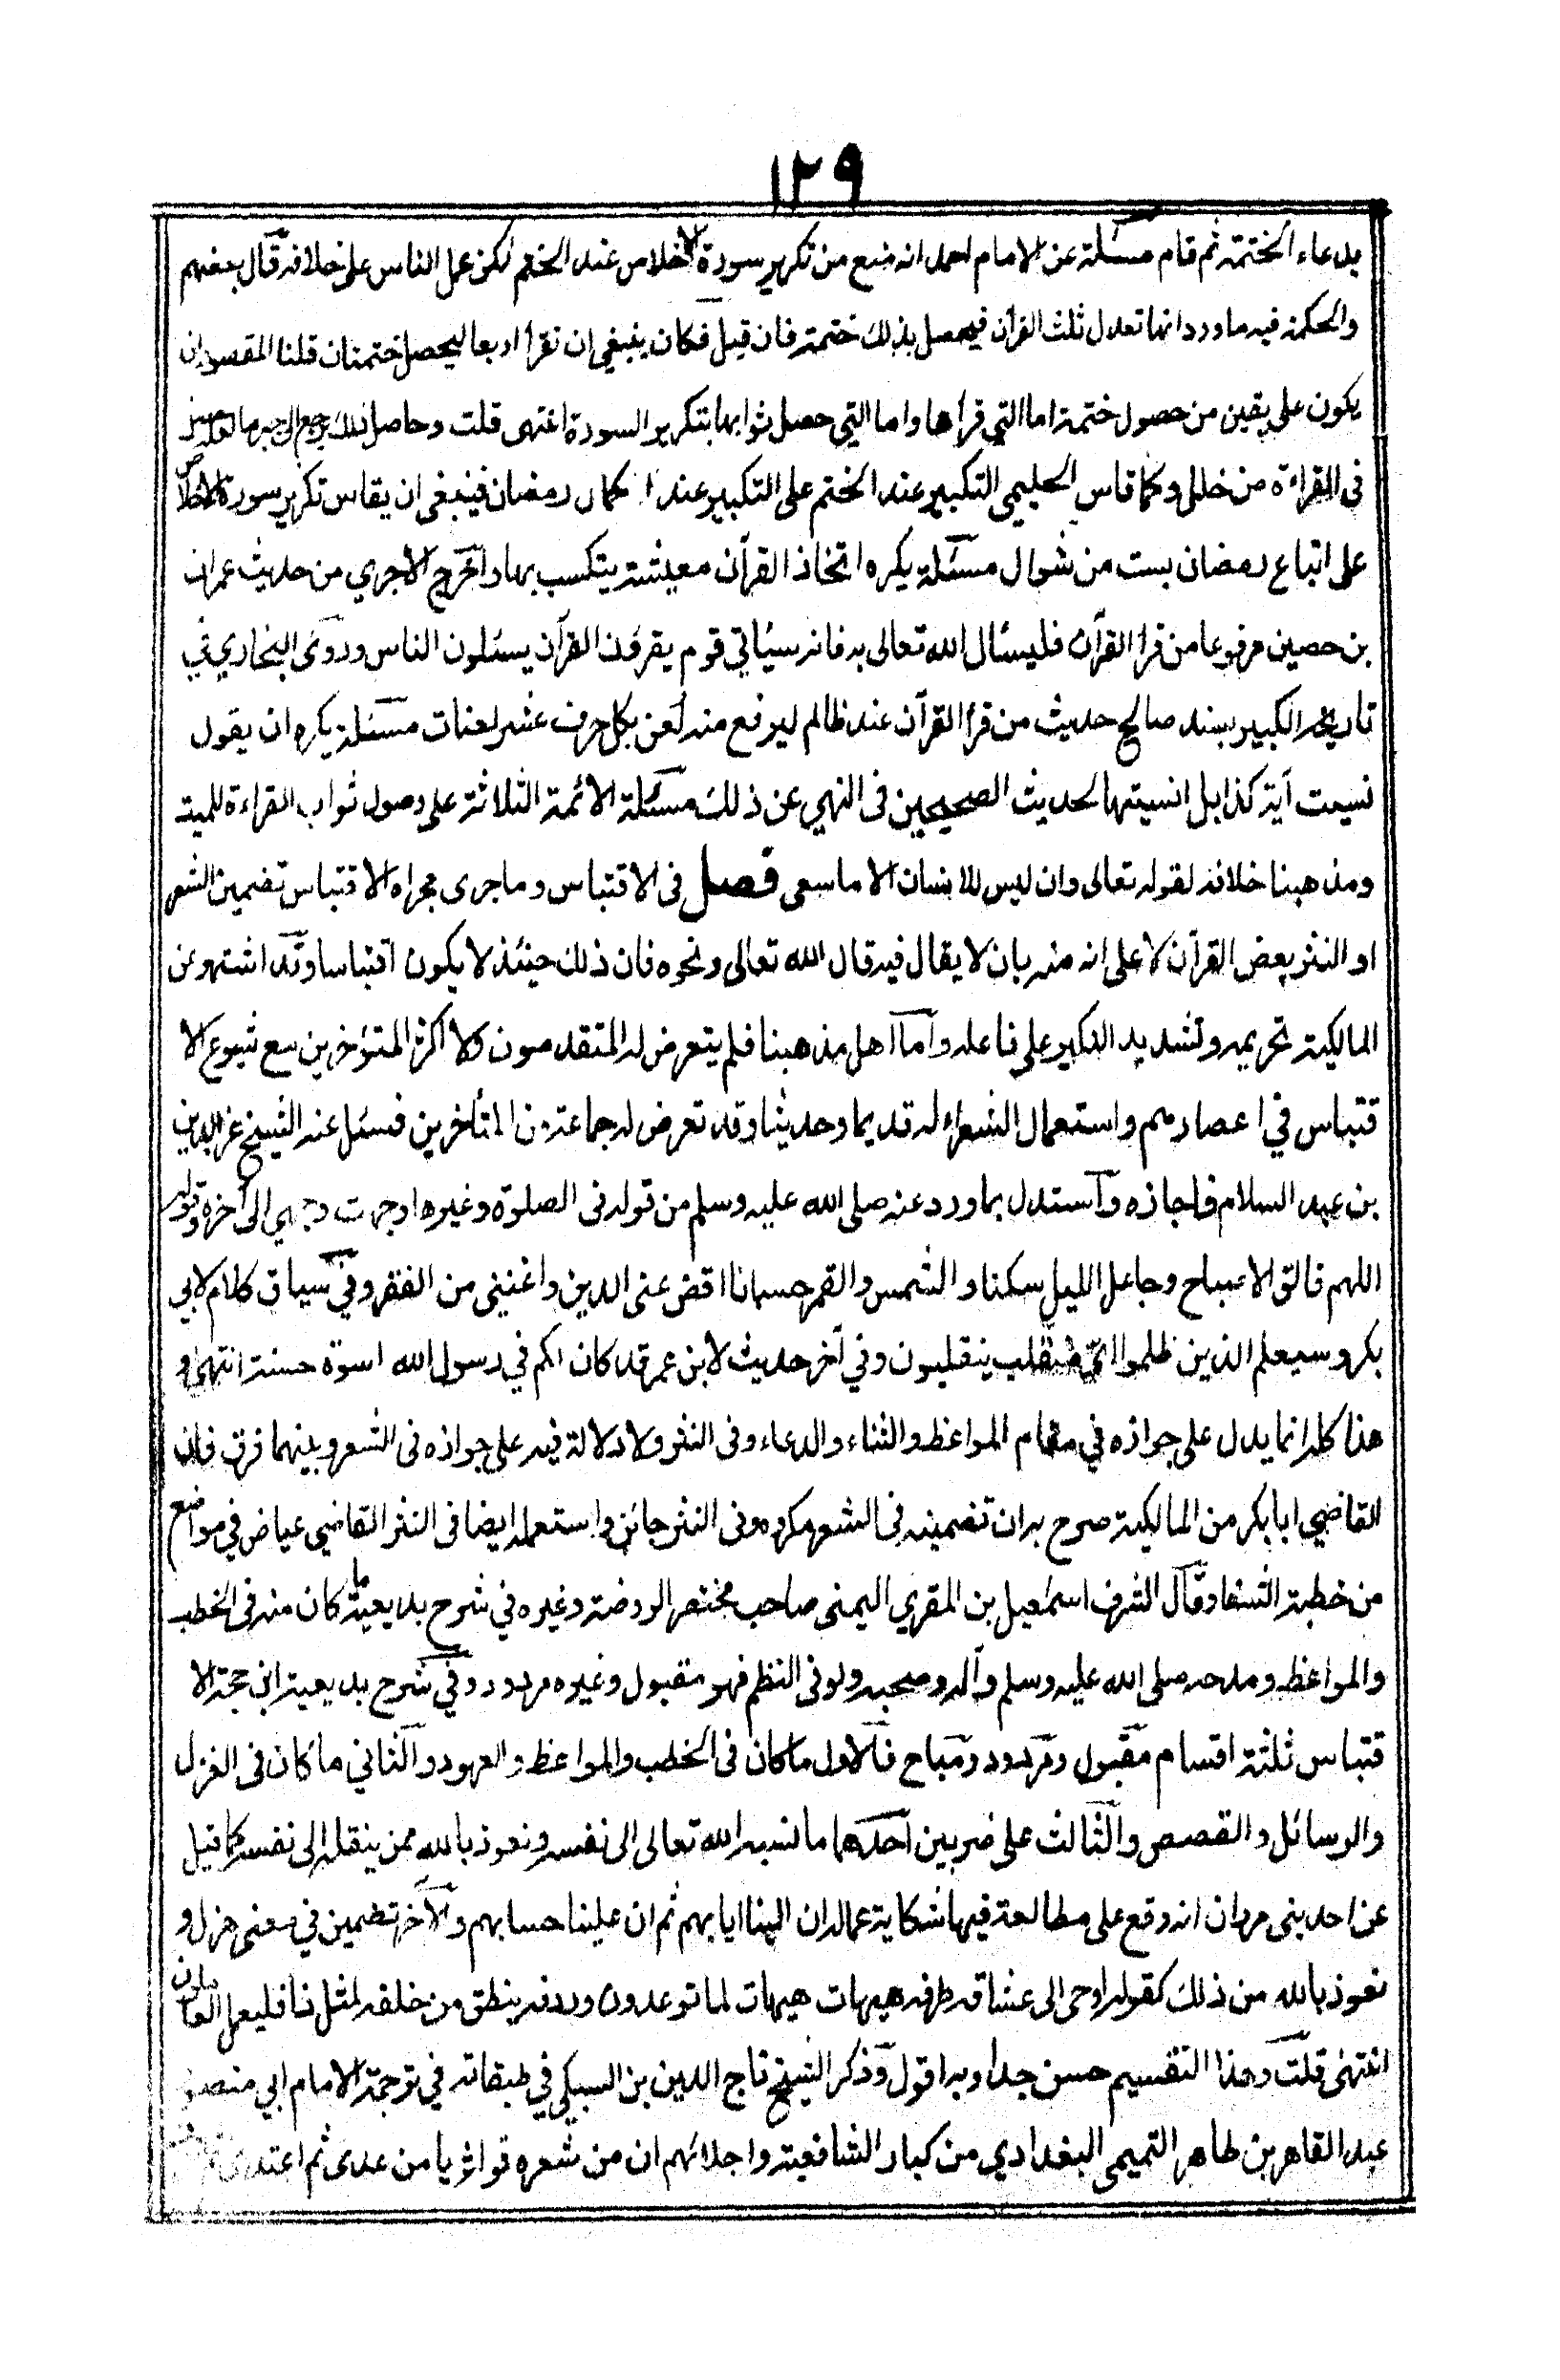 ١٢٩
بدعاء الختمة ثم قام مسئلة عن الامام احمد انه منع من تكرير سورة الاخلاص عند الختم لكن عمل الناس على خلافه قال بعضهم
والحكمة فيه ما ورد انها تعدل ثلث القرآن فيحصل بذلك ختمة فان قيل فكان ينبغي ان تقرأ اربعا ليحصل ختمتان قلنا المقصود ان
يكون على يقين من حصول ختمة اما التي قرأها واما التي حصل ثوابها بتكرير السورة انتهى قلت وحاصل ذلك يرجع الى جبر ما لعله حصل
فى القراءة من خلل وكما قاس الحليمي التكبير عند الختم على التكبير عند اكمال رمضان فينبغى ان يقاس تكرير سورة الاخلاص
على اتباع رمضان بست من شوال مسئلة يكره اتخاذ القرآن معيشة يتكسب بها واخرج الآجري من حديث عمران
بن حصين مرفوعا من قرأ القرآن فليسئال الله تعالى به فانه سيئاتي قوم يقرؤن القرآن يسئلون الناس وروى البخاري في
تاريخه الكبير بسند صالح حديث من قرأ القرآن عند ظالم ليرفع منه لعن بكل حرف عشر لعنات مسئلة يكره ان يقول
نسيت آية كذا بل انسيتها لحديث الصحيحين فى النهي عن ذلك مسئلة الائمة الثلاثة على وصول ثواب القراءة للميت
ومذهبنا خلافه لقوله تعالى وان ليس للانسان الا ما سعى فصل فى الاقتباس وما جرى مجراه الاقتباس تضمين الشعر
او النثر بعض القرآن لا على انه منه بان لا يقال فيه قال الله تعالى ونحوه فان ذلك حينئذ لا يكون اقتباسا وقد اشتهر عن
المالكية تحريمه وتشديد النكير على فاعله واما اهل مذهبنا فلم يتعرض له المتقدمون ولا اكثر المتؤخرين مع شيوع الا
قتباس في اعصارهم واستعمال الشعراء له قديما وحديثا وقد تعرض له جماعة من المتأخرين فسئل عنه الشيخ عز الدين
بن عبد السلام فاجازه واستدل بما ورد عنه صلى الله عليه وسلم من قوله فى الصلوة وغيرها وجهت وجهي الى آخره وقوله
اللهم فالق الاصباح وجاعل الليل سكنا والشمس والقمر حسبانا اقض عنى الدين واغنينى من الفقر وفي سياق كلام لابي
بكر وسيعلم الذين ظلموا اي منقلب ينقلبون وفي آخر حديث لابن عمر قد كان لكم في رسول الله اسوة حسنة انتهى و
هذا كله انما يدل على جوازه في مقام المواعظ والثناء والدعاء وفى النثر ولا دلالة فيه على جوازه فى الشعر وبينهما فرق فان
القاضي ابا بكر من المالكية صرح بد ان تضمينه فى الشعر مكروه وفى النثر جائز واستعمله ايضا فى النثر القاضي عياض في مواضع
من خطبة الشفا وقال الشرف اسمعيل بن المقري اليمنى صاحب مختصر الروضة وغيره في شرح بديعيته ما كان منه فى الخطب
والمواعظ ومدحه صلى الله عليه وسلم وآله وصحبه ولو فى النظم فهو مقبول وغيره مردود وفي شرح بديعية ابن حجة الا
قتباس ثلثة اقسام مقبول ومردود ومباح فالاول ما كان فى الخطب والمواعظ والعهود والثاني ما كان فى الغزل
والرسائل والقصص والثالث على ضربين احدهما ما نسبه الله تعالى الى نفسه ونعوذ بالله ممن ينقله الى نفسه كما قيل
عن احد بنى مروان انه وقع على مطالعة فيها شكاية عماله ان الينا ايابهم ثم ان علينا حسابهم والآخر تضمين في معنى هزل و
نعوذ بالله من ذلك كقوله اوحى الى عشاقه طرفه هيهات هيهات لما توعدون وردفه ينطق من خلفه لمثل ذا فليعمل العاملون
انتهى قلت وهذا التقسيم حسن جدا وبه اقول وذكر الشيخ تاج الدين بن السبكي في طبقاته في ترجمة الامام ابي منصور
عبد القاهر بن طاهر التميمي البغدادي من كبار الشافعية واجلائهم ان من شعره قوله يا من عدى ثم اعتدى